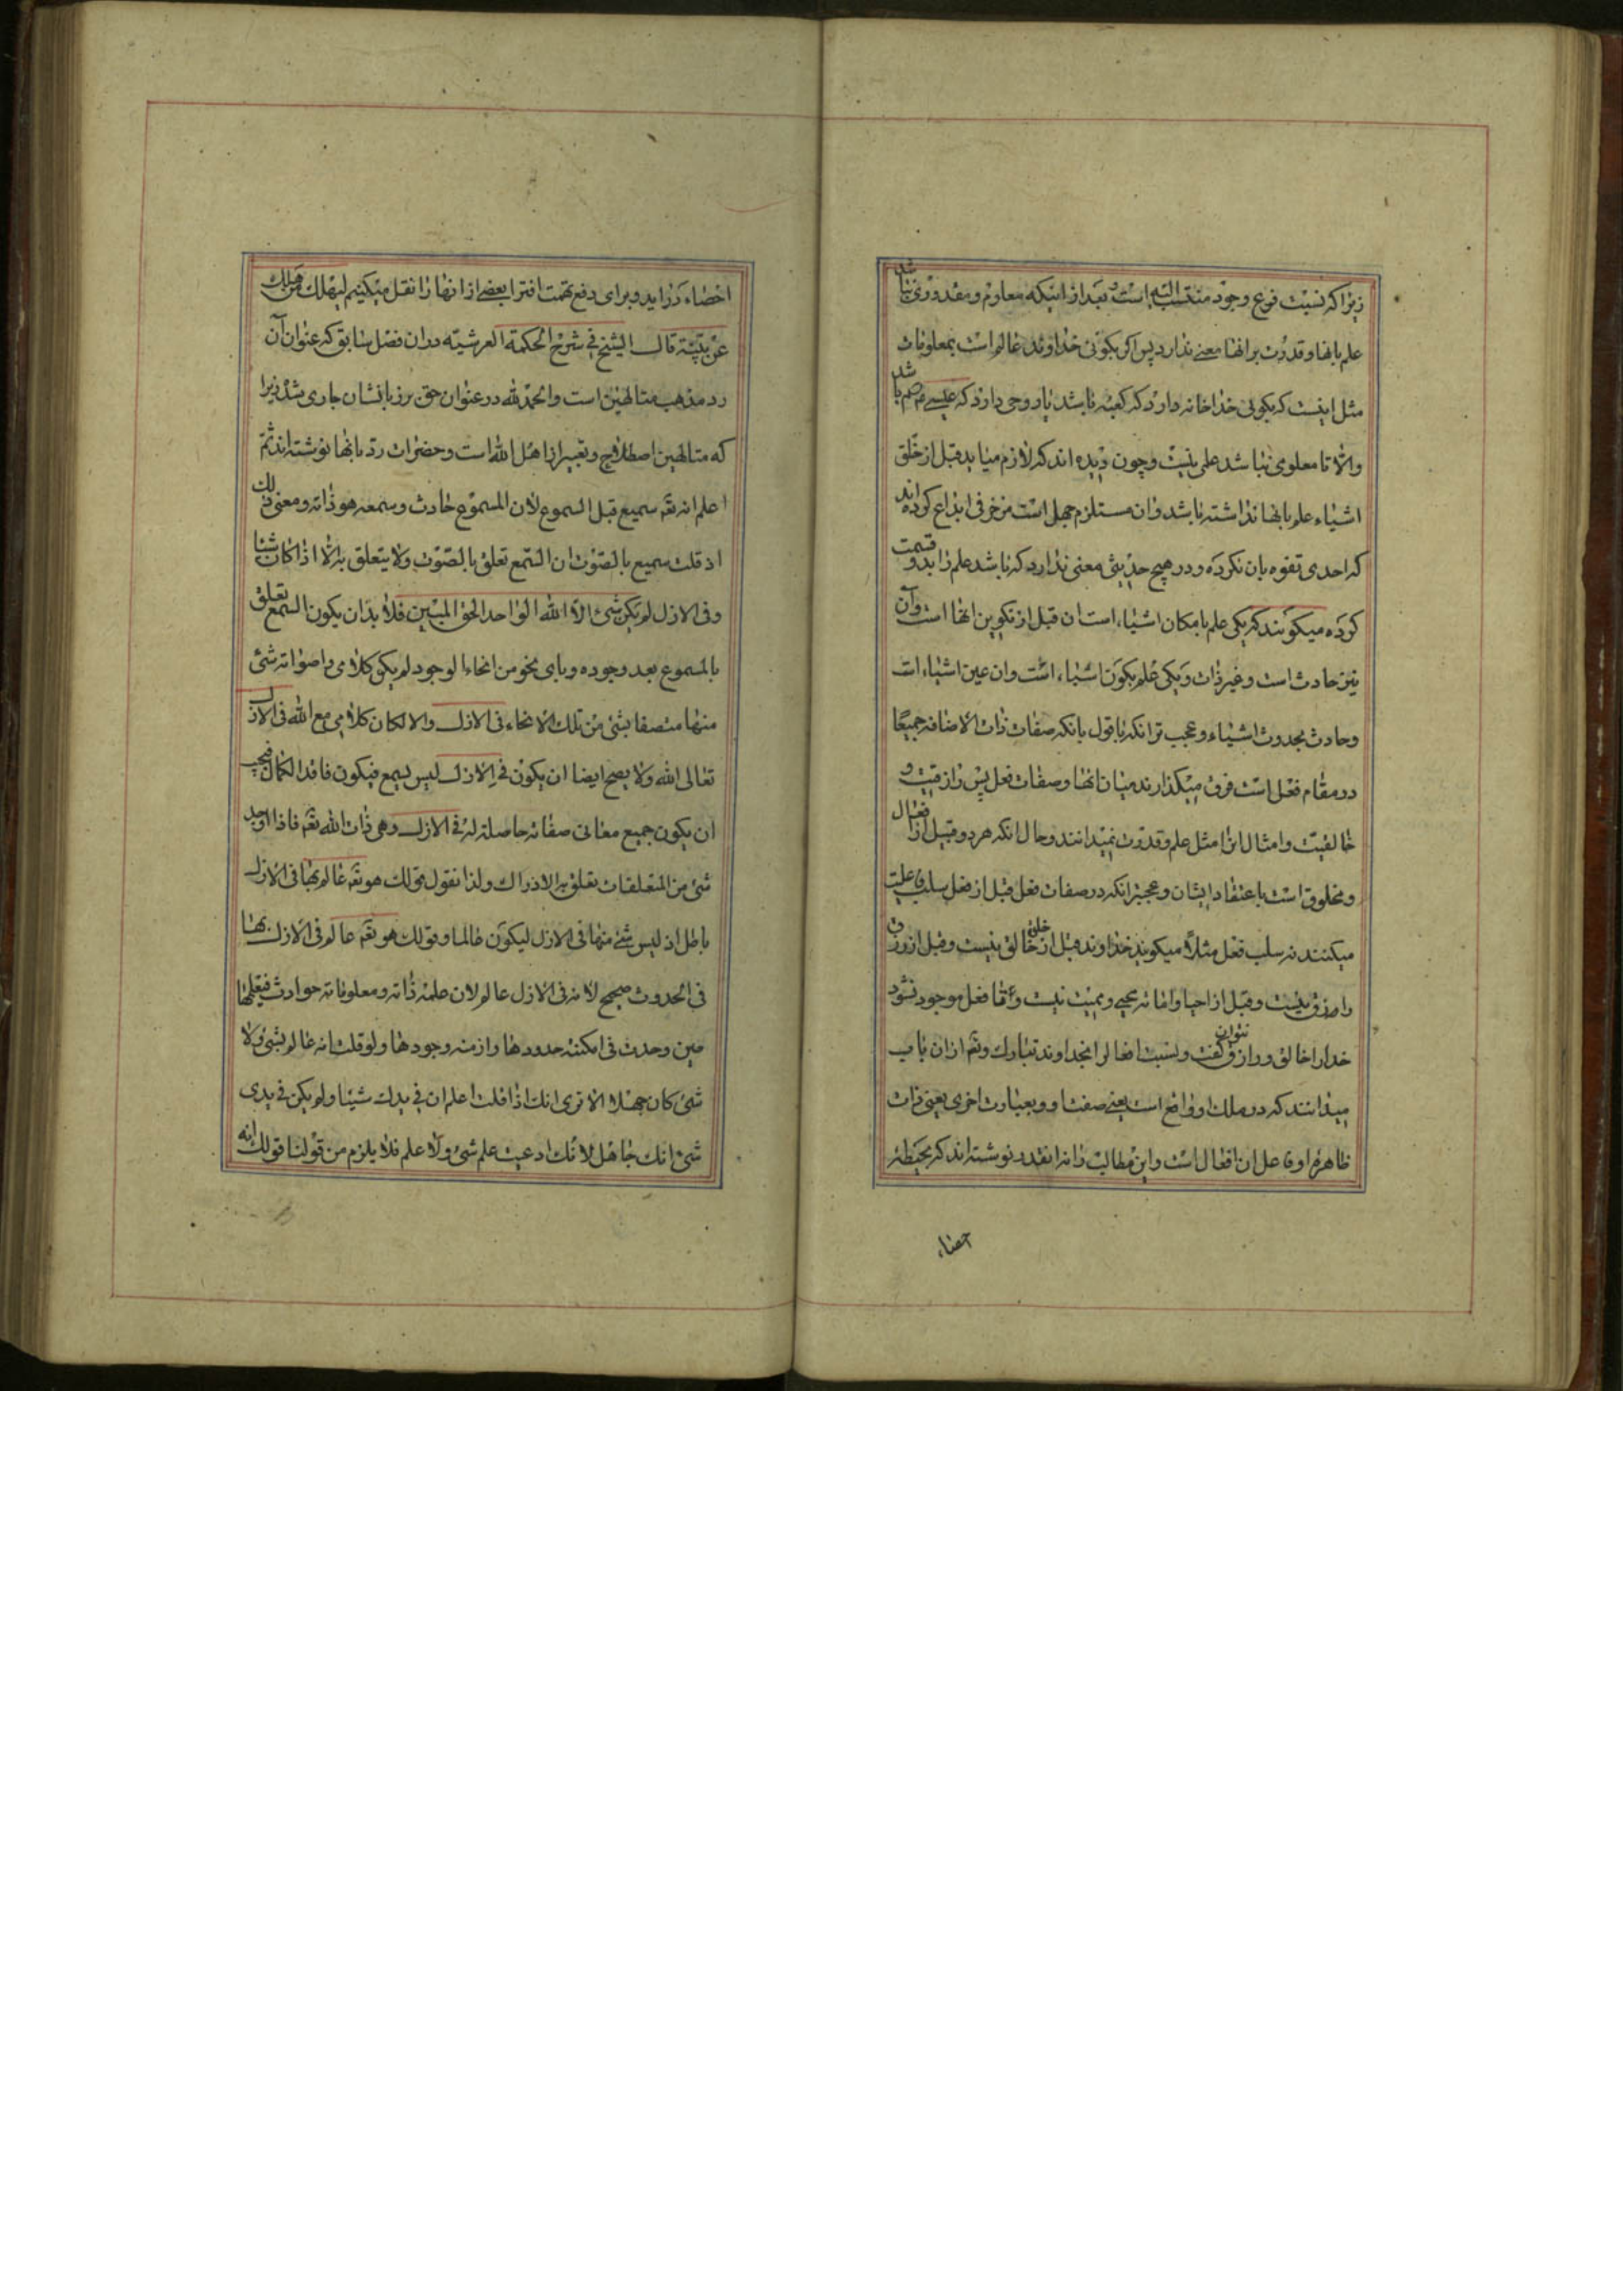 زیرا که نسبت فرع وجود منتسب الیه است و بعد از اینکه معلوم و مقدوری نباشد
علم بانها و قدرت برانها معنی ندارد پس اکر بکوئی خداوند عالم است بمعلومات
مثل اینست که بکوئی خدا خانه دارد که کعبه باشد یا روحی دارد که عیسی باشد
والا تا معلومی نباشد علمی نیست و چون دیده اند که لازم میاید قبل از خلق
اشیاء علم بانها نداشته باشد و ان مستلزم جهل است مزخرفی ابداع کرده اند
که احدی تفوه بان نکرده و در هیچ حدیثی معنی ندارد که باشد علم را بدو قسمت
کرده میکویند که یکی علم بامکان اشیاء است ان قبل از تکوین انها است و آن
نیز حادث است و غیر ذات و یکی علم بکون اشیاء است وان عین اشیاء است
وحادث بحدوث اشیاء و عجب تر انکه با قول بانکه صفات ذات الاضافه جمیعا
در مقام فعل است فرق میکذارند میان انها و صفات فعل پس رازقیت و
خالقیت و امثال انرا مثل علم و قدرت نمیدانند و حال انکه هر دو قبیل از افعال
و مخلوق است باعتقاد ایشان و عجیبتر انکه در صفات فعل قبل از فعل سلب فاعلیت
میکنند نه سلب فعل مثلا میکویند خداوند قبل از خلق خالق نیست و قبل از رزق
رازق نیست و قبل از احیا و اماته محیی و ممیت نیست و تا فعل موجود نشود
خدا را خالق و رازق نتوان کفت و نسبت افعال را بخداوند تبارک وتع از ان باب
میدانند که در ملک او واقع است یعنی صفت او و بعبارت اخری یعنی ذات
ظاهره او فاعل ان افعال است و این مطالب را نه انقدر نوشته اند که بحیطه
احصاء
احصاء دراید و برای دفع تهمت افترا بعضی از انها را نقل میکنیم لیهلک من هلک
عن بینة قال الشیخ فی شرح الحکمة العرشیه در ان فصل سابق که عنوان آن
رد مذهب متالهین است والحمد لله در عنوان حق بر زبانشان جاری شد زیرا
که متالهین اصطلاح و تعبیر از اهل الله است و حضرات رد بانها نوشته اند ثم
اعلم انه تع سمیع قبل المسموع لان المسموع حادث وسمعه هو ذاته ومعنی ذلک
اذ قلت سمیع بالصوت ان السمع تعلق بالصوت ولا یتعلق به الا اذا کان شیئا
وفی الازل لم یکن شیء الا الله الواحد الحق المبین فلا بد ان یکون السمع تعلق
بالمسموع بعد وجوده وبای نحو من انحاء الوجود لم یکن کلامی واصواته شیء
منها متصفا بشیء من تلک الانحاء فی الازل والا لکان کلامی مع الله فی الازل
تعالی الله ولا یصح ایضا ان یکون فی الازل لیس بسمیع فیکون فاقد الکمال فیجب
ان یکون جمیع معانی صفاته حاصلة له فی الازل وهی ذات الله تع فاذا اوجد
شیء من المتعلقات تعلق به الادراک ولذا نقول قولک هو تع عالم بها فی الازل
باطل اذ لیس شیء منها فی الازل لیکون عالما وقولک هو تع عالم فی الازل بها
فی الحدوث صحیح لانه فی الازل عالم لان علمه ذاته ومعلوماته حوادث فیعلمها
حین وحدث فی امکنة حدودها وازمنه وجودها ولو قلت انه عالم بشیء ولا
شیء کان جهلا الا تری انک اذا قلت اعلم ان فی یدک شیئا ولم یکن فی یدی
شیء انک جاهل لانک ادعیت علم شیء ولا علم فلا یلزم من قولنا قولک انه